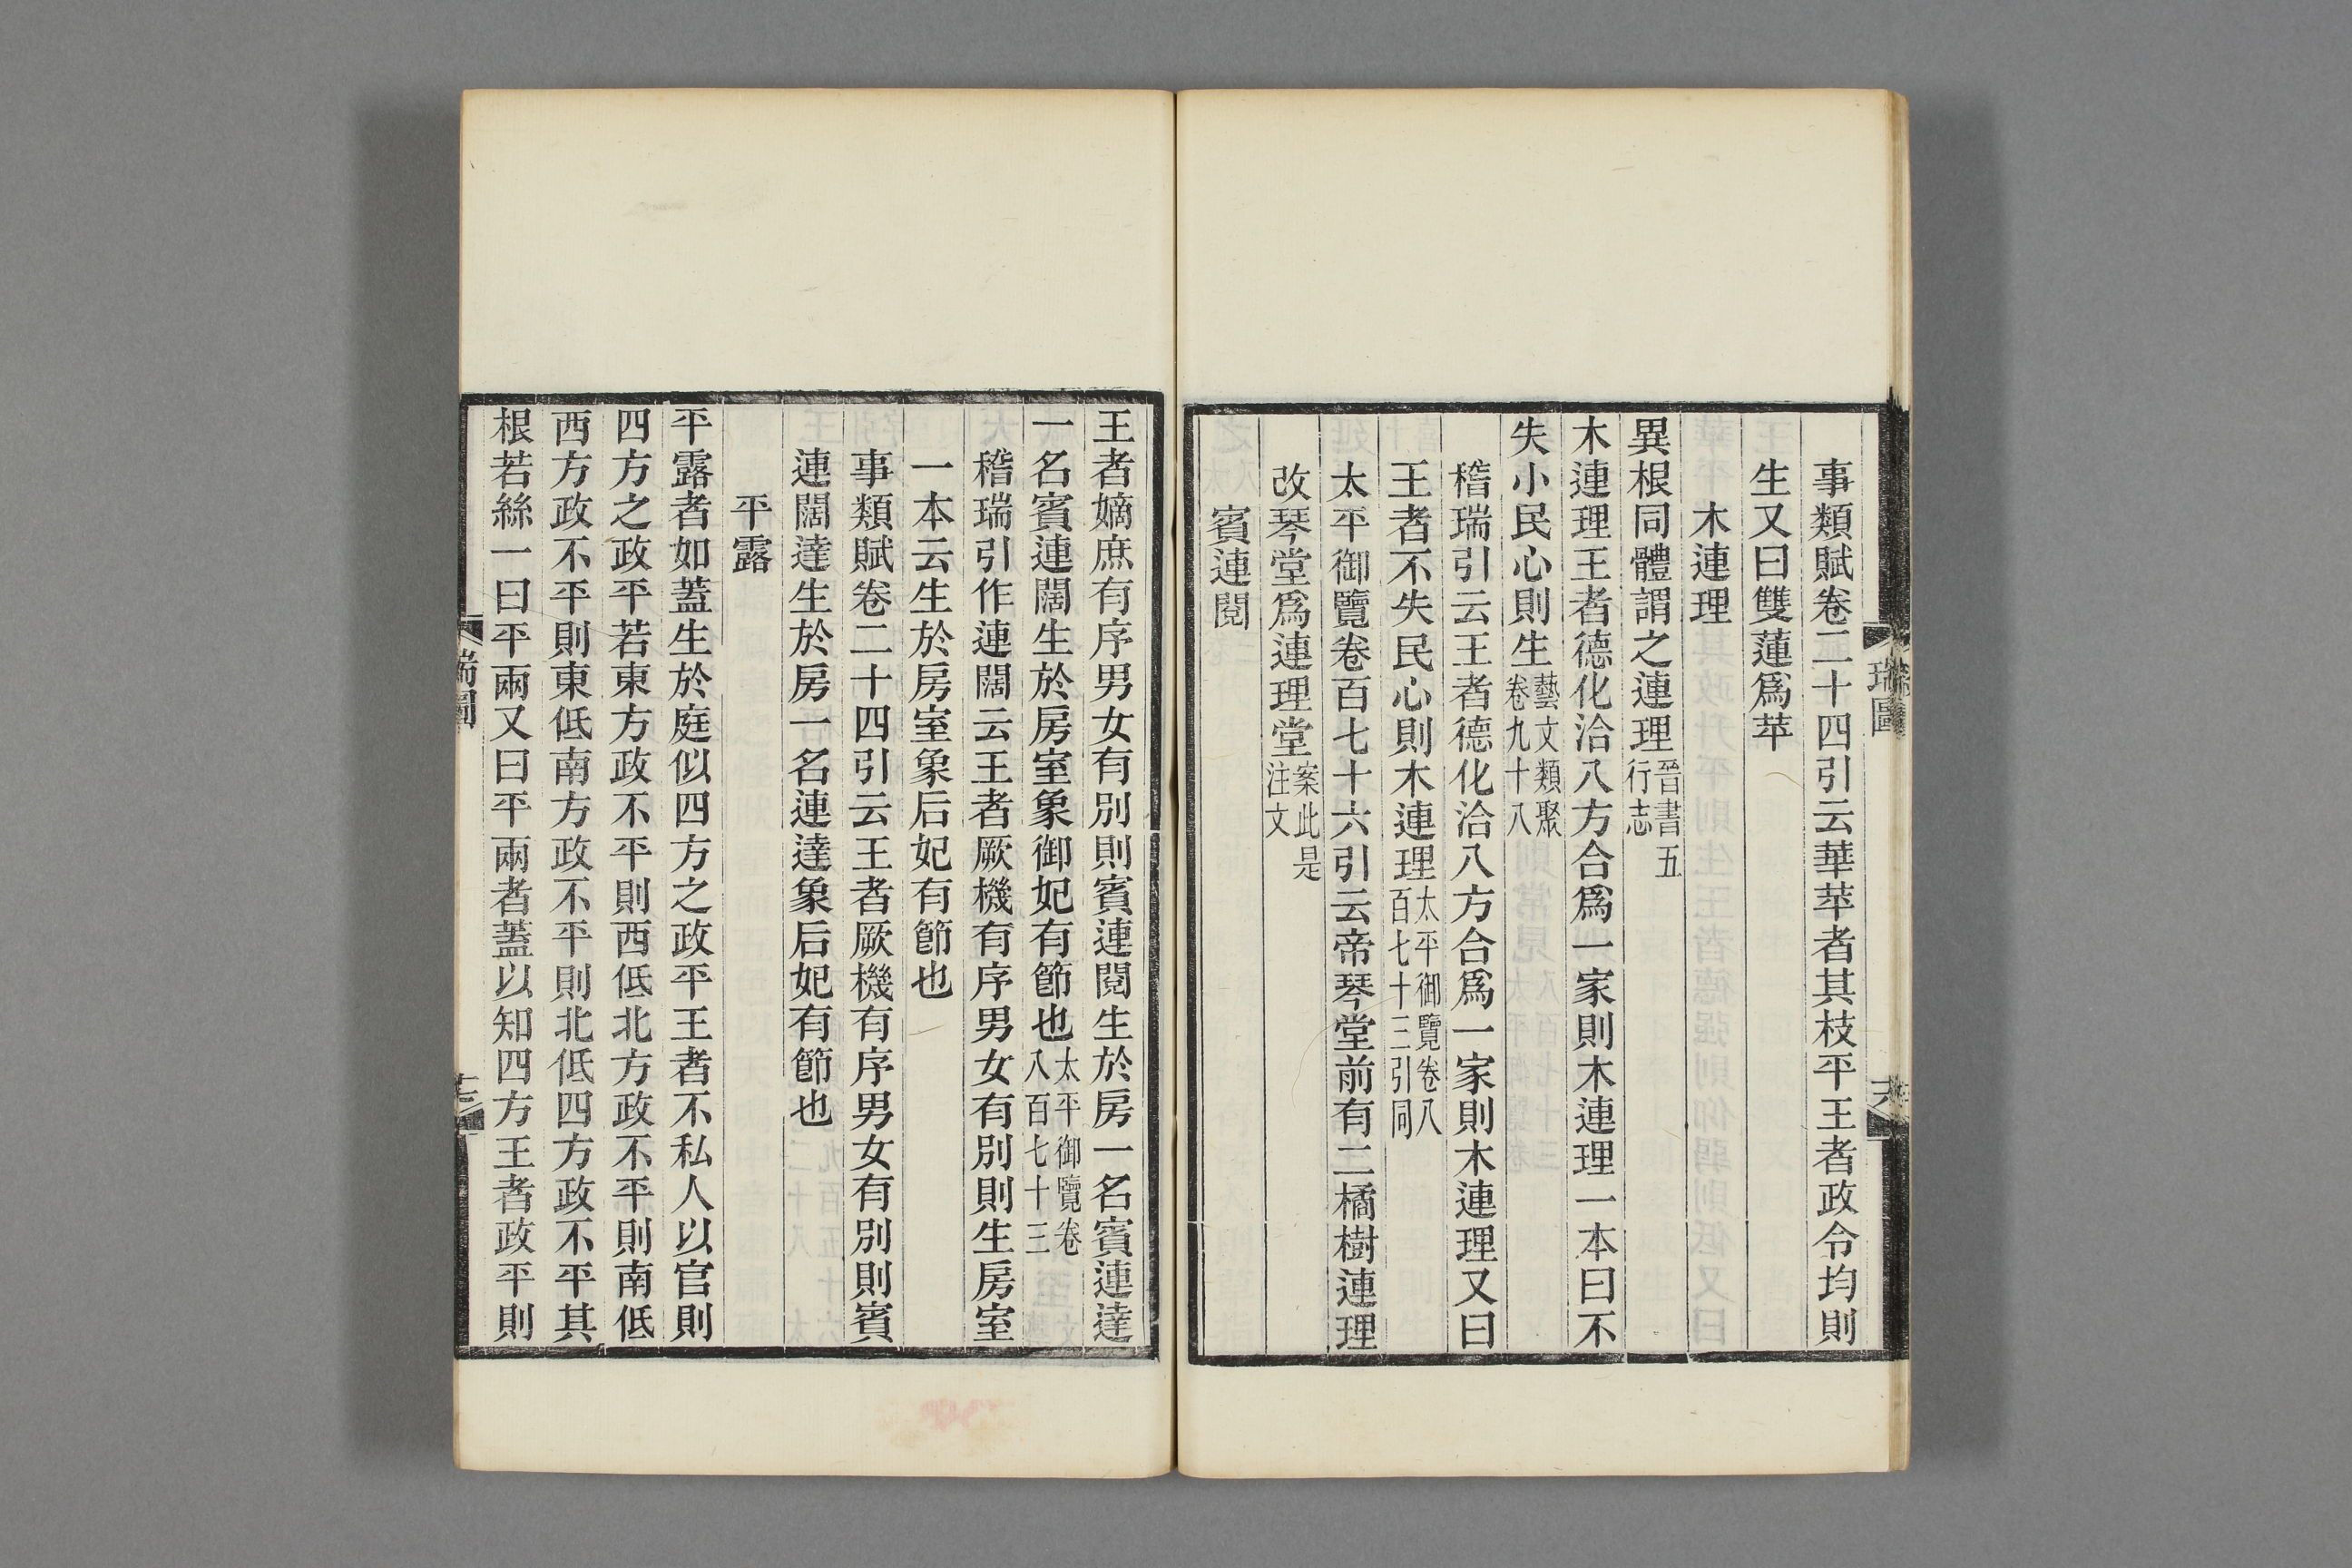 事類賦卷二十四引云華苹者其枝平王者政令均則
生又曰雙蓮爲苹
木連理
異根同體謂之連理晉書五行志
木連理王者德化洽八方合爲一家則木連理一本曰不
失小民心則生藝文類聚卷九十八
稽瑞引云王者德化洽八方合爲一家則木連理又曰
王者不失民心則木連理太平御覽卷八百七十三引同
太平御覽卷百七十六引云帝琴堂前有二橘樹連理
改琴堂爲連理堂案此是注文
賓連閱
王者嫡庶有序男女有別則賓連閱生於房一名賓連達
一名賓連闊生於房室象御妃有節也太平御覽卷八百七十三
稽瑞引作連闊云王者厥機有序男女有別則生房室
一本云生於房室象后妃有節也
事類賦卷二十四引云王者厥機有序男女有別則賓
連闊達生於房一名連達象后妃有節也
平露
平露者如蓋生於庭似四方之政平王者不私人以官則
四方之政平若東方政不平則西低北方政不平則南低
西方政不平則東低南方政不平則北低四方政不平其
根若絲一曰平兩又曰平兩者蓋以知四方王者政平則
瑞圖